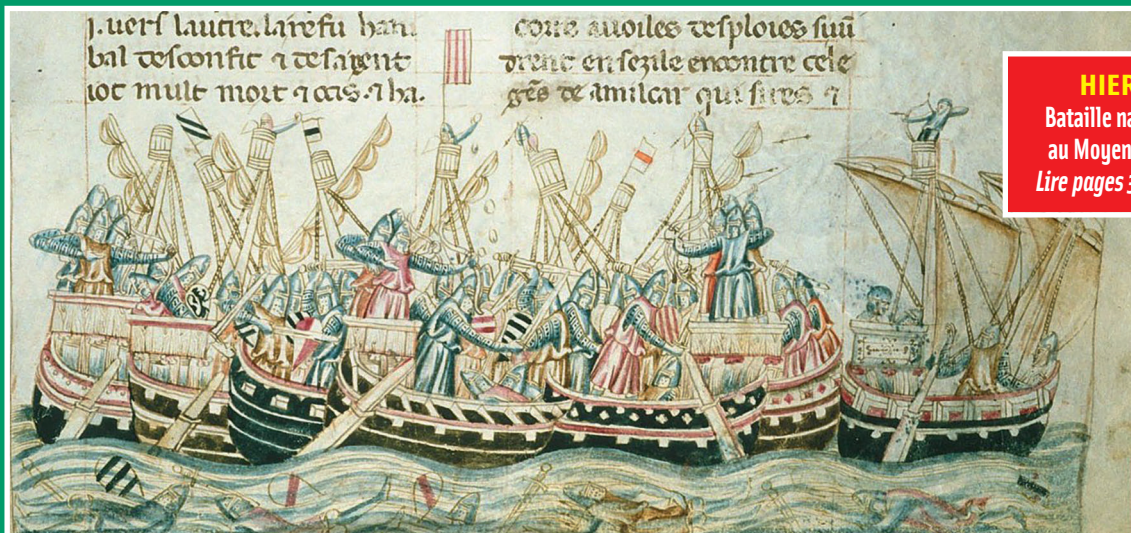 vers lautre. la refu han
bal desconfit 7 desa gent
iot mult mort 7 ocis. 7 ha.
a uoiles desploies
drent en sezile encontre cele
gēs de amilcar qui
HIER
Bataille na
au Moyen
Lire pages 3